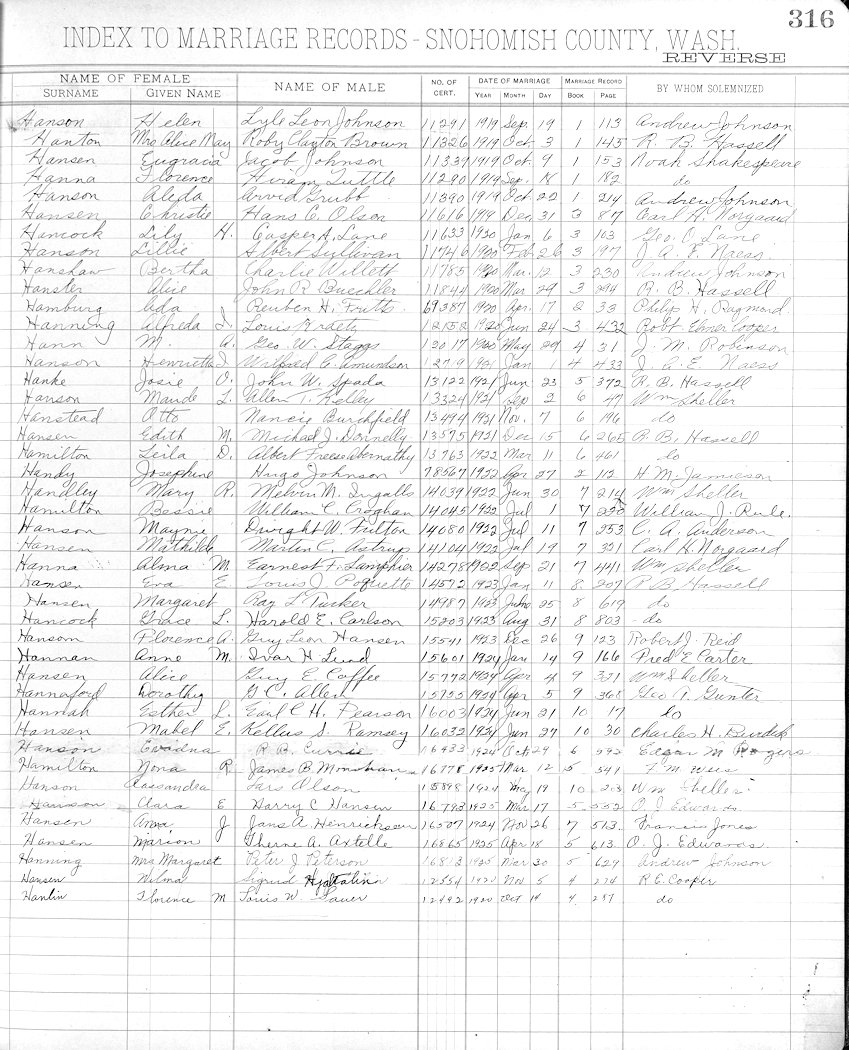 316
INDEX TO MARRIAGE RECORDS - SNOHOMISH COUNTY, WASH.
REVERSE
NAME OF FEMALE NAME OF MALE NO. OF CERT. DATE OF MARRIAGE MARRIAGE RECORD BY WHOM SOLEMNIZED
SURNAME GIVEN NAME YEAR MONTH DAY BOOK PAGE
Hanson Helen Lyle Leon Johnson 11291 1919 Sep. 19 1 113 Andrew Johnson
Hanton Mrs Alice May Roby Clayton Brown 11326 1919 Oct. 3 1 145 R. B. Hassell
Hansen Eugracia Jacob Johnson 11339 1919 Oct 9 1 153 Noah Shakespeare
Hanna Florence Hiram Tuttle 11290 1919 Sep. 18 1 182 do
Hanson Aleda Arvid Grubb 11390 1919 Oct 22 1 214 Andrew Johnson
Hansen Christie Hans C. Olson 11616 1919 Dec 31 3 87 Carl H. Norgaard
Hancock Lily H. Casper A. Lane 11633 1920 Jan 6 3 103 Geo. O. Lane
Hanson Lillie Albert Sullivan 11746 1920 Feb 26 3 197 J. A. E. Naess
Hanshaw Bertha Charlie Willett 11785 1920 Mar. 12 3 230 Andrew Johnson
Hanster Alice John R Buechler 11844 1920 Mar 29 3 294 R. B. Hassell
Hamburg Ada Reuben H. Fritts 69387 1920 Apr. 17 2 33 Philip H. Raymond
Hanning Alfreda I. Louis 12158 1920 Jun 24 3 432 Robt Elmer Cooper
Hann M. A. Geo. W. Staggs 12017 1920 May 29 4 31 J. M. Robinson
Hanson Henrietta I Wilfred C. Amundson 1921 Jan 4 433 J. A. E. Naess
Hanke Josie V. John W. Spada 13122 1921 Jun 23 5 372 R. B. Hassell
Hanson Maude L. Allen T. Kelley 13324 1921 Sep 2 6 47 Wm Sheller
Hanstead Otto Nancie Burchfield 13494 1921 Nov. 7 6 196 do
Hansen Edith M. Michael J. Donnelly 13575 1921 Dec 15 6 265 R. B. Hassell
Hamilton Leila D. Albert Freese Abernathy 13763 1922 Mar 11 6 461 do
Handy Josephine Hugo Johnson 78567 1922 Apr 27 2 112 H. M. Jamieson
Handley Mary R. Melvin M. Ingalls 14039 1922 Jun 30 7 214 Wm Sheller
Hamilton Bessie William C. Croghan 14045 1922 Jul 1 7 220 William J. Rule.
Hanson Mayme Dwight W. Fulton 14080 1922 Jul 11 7 253 C. A. Anderson
Hansen Mathilda Martin C. Astrup 14104 1922 Jul 19 7 321 Carl H. Norgaard
Hanna Alma M. Earnest F. Lamphier 14278 1922 Sep 21 7 441 Wm Sheller
Hansen Eva E Louis J. Poquette 14572 1923 Jan 11 8 207 R B Hassell
Hansen Margaret Ray L Tucker 14987 1923 June 25 8 619 do
Hancock Grace L. Harold E. Carlson 15203 1923 Aug 31 8 803 do
Hansom Florence A. Guy Leon Hansen 15541 1923 Dec 26 9 123 Robert J. Reid
Hannan Anne M. Ivar H. Lund 15601 1924 Jan 14 9 166 Fred E Carter
Hansen Alice Guy E. Coffee 15772 1924 Apr 4 9 321 Wm Sheller
Hannaford Dorothy G. C. Allen 1924 Apr 5 9 368 Geo T. Gunter
Hannah Esther L. Earl C. H. Pearson 16003 1924 Jun 21 10 17 do
Hansen Mabel E. Kellus S. Ramsey 16032 1924 Jun 27 10 30 Charles H. Burdick
Hanson Evadna R. B. Currie 16433 1924 Oct 29 6 292 Edgar M Rogers
Hamilton Nona R. James B. Monahan 16778 1925 Mar 12 5 541 F. M. Weis
Hanson Cassandra Lars Olson 15898 1924 May 19 10 203 Wm Sheller
Hanson Clara E Harry C Hansen 16793 1925 Mar 17 5 552 O. J. Edwards
Hansen Anna J Jans A. Henricksen 16507 1924 Nov 26 7 513 Francis Jones
Hansen Marion Therne A. Axtelle 16865 1925 Apr 18 5 613 O. J. Edwards
Hanning Mrs Margaret Peter J. Peterson 16813 1925 Mar 30 5 629 Andrew Johnson
Hansen Wilma Sigurd Hjaltalin 12554 1920 Nov 5 4 274 R. E. Cooper
Hanlin Florence M Louis W. Sauer 12492 1920 Oct 14 4 237 do